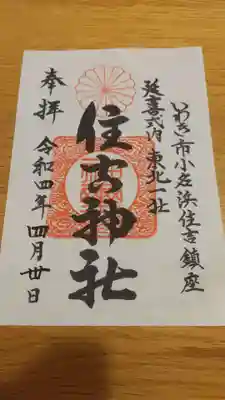 いわき市小名浜住吉鎮座
延喜式内 東北一社
住吉神社
奉拝 令和四年 四月廿日